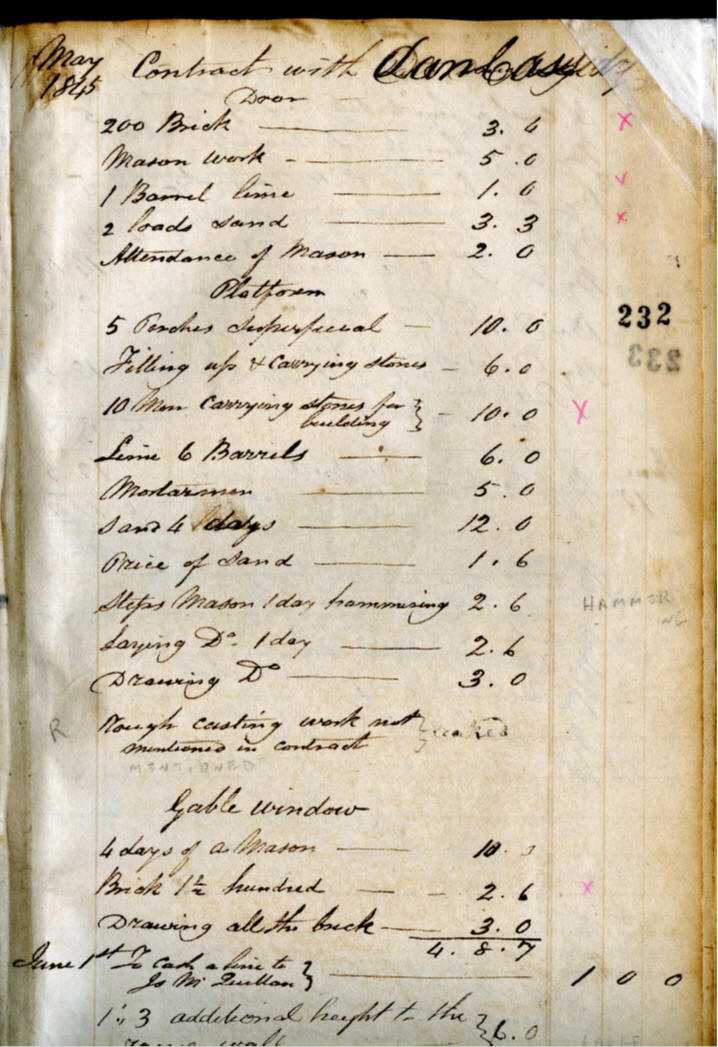 May
1845
Contract with Dan Casidy
Door
200 Brick 3. 4 x
Mason work - 5. 0
1 Barrel lime 1. 0 v
2 loads sand 3. 3 x
Attendance of Mason 2. 0
Platform
5 Perches Superficial 10. 0
232
233
Filling up & Carrying stones 6. 0
10 Men Carrying stones for building } 10. 0 x
Lime 6 Barrels 6. 0
Mortarmen 5. 0
Sand 4 days 12. 0
Price of Sand 1. 6
Steps Mason 1 day hammering 2. 6
HAMMER
ING
Laying Do. 1 day 2. 6
Drawing Do 3. 0
R Rough casting work not
mentioned in contract }
MENTIONED
Gable window
4 days of a Mason 10.
Brick 1½ hundred 2. 6 x
Drawing all the brick 3. 0
4. 8. 7
June 1st To cash a line to
Js McQuillan } 1 0 0
1", 3 additional height to the } 6. 0
wall